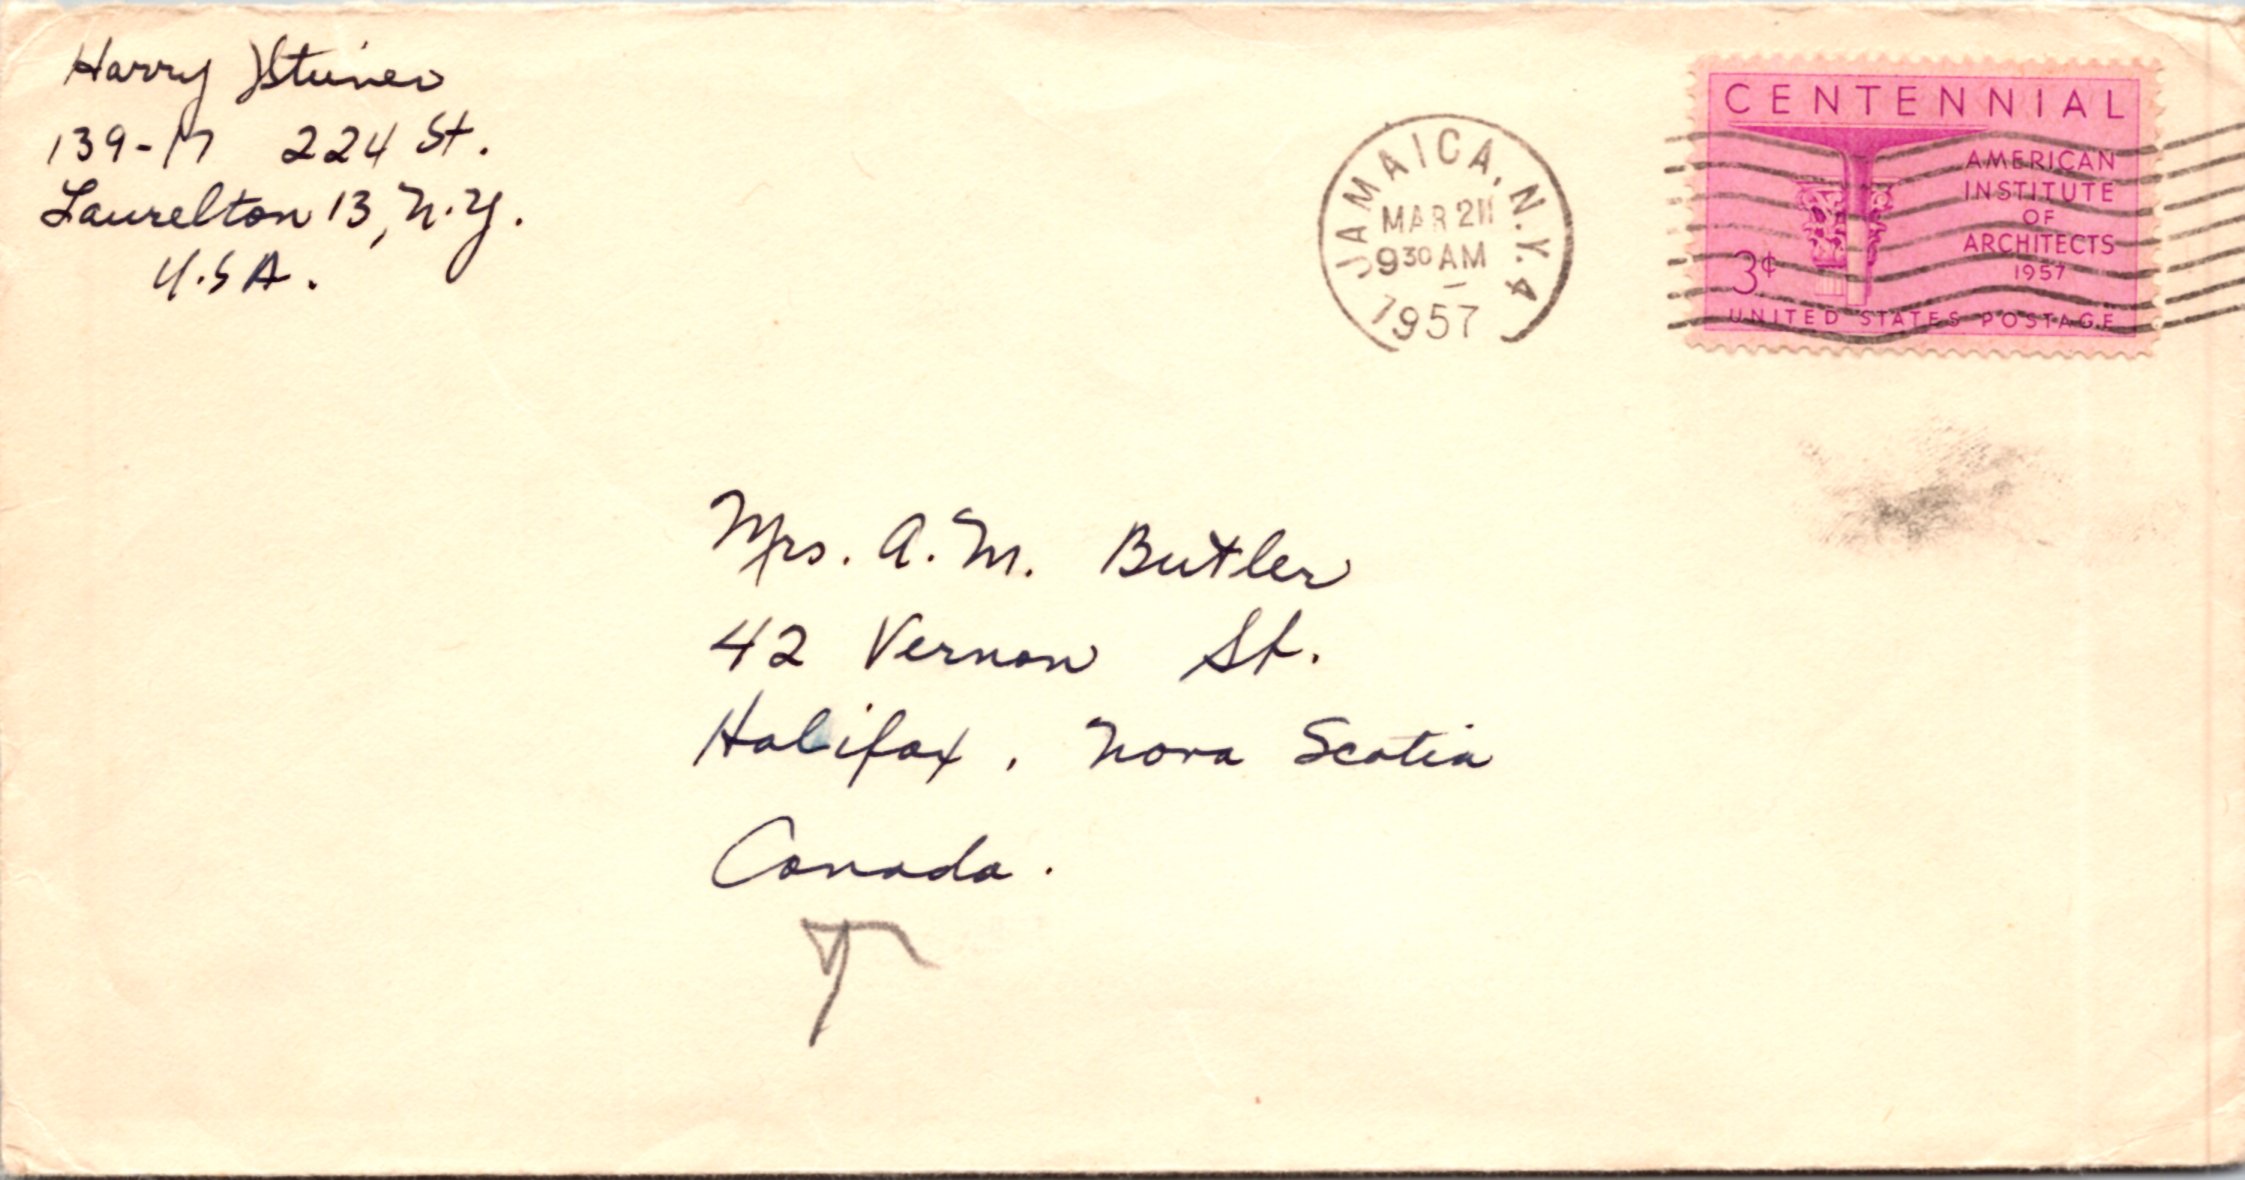 Harry Steiner
139-17 224 St.
Laurelton 13, N.Y.
U.S.A.
JAMAICA, N.Y. 4
MAR
9 30 AM
1957
CENTENNIAL
AMERICAN
INSTITUTE
OF
ARCHITECTS
1957
3¢
UNITED STATES POSTAGE
Mrs. A. M. Butler
42 Vernon St.
Halifax, Nova Scotia
Canada.